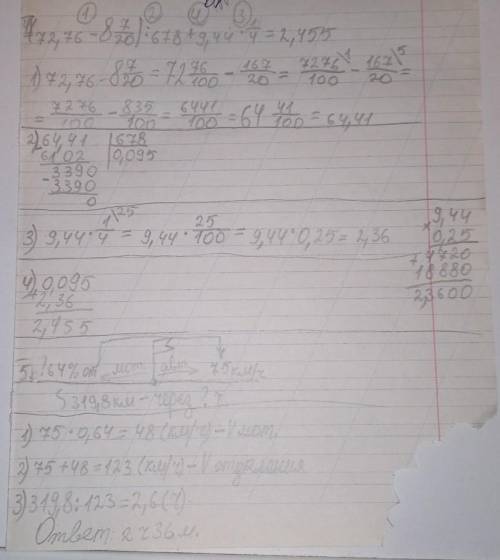 ① ② ④ ③
(72,76 - 8 7/20) : 678 + 9,44 · 1/4 = 2,455
1) 72,76 - 8 7/20 = 72 76/100 - 167/20 = 7276/100 \1 - 167/20 \5 =
= 7276/100 - 835/100 = 6441/100 = 64 41/100 = 64,41
2) 64,41 | 678
6102 | 0,095
- 3390
3390
0
3) 9,44 · 1/4 \25 = 9,44 · 25/100 = 9,44 · 0,25 = 2,36
9,44
× 0,25
+ 4720
18880
2,3600
4) 0,095
+ 2,36
2,455
5. ?64% от мот авт 75 км/ч
S 319,8 км - через ? ч.
1) 75 · 0,64 = 48 (км/ч) - V мот.
2) 75 + 48 = 123 (км/ч) - V отдаления
3) 319,8 : 123 = 2,6 (ч)
Ответ: 2 ч 36 м.